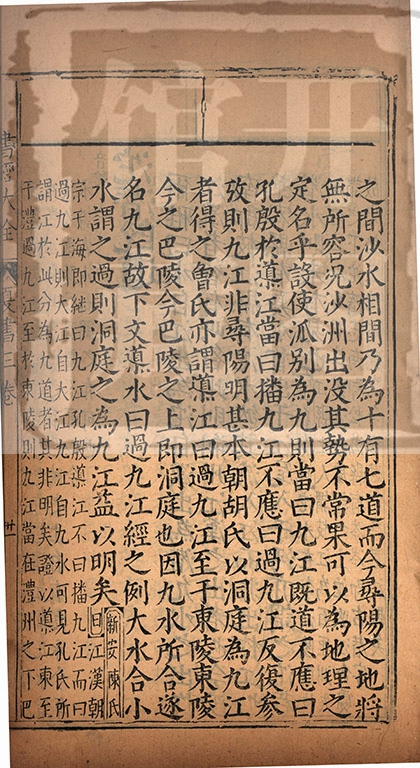 之間沙水相間乃為十有七道而今尋陽之地將
無所容況沙洲出没其勢不常果可以為地理之
定名乎設使派别為九則當曰九江既道不應曰
孔殷於䆃江當曰播九江不應曰過九江反復參
攷則九江非尋陽明甚本朝胡氏以洞庭為九江
者得之曾氏亦謂䆃江曰過九江至于東陵東陵
今之巴陵今巴陵之上即洞庭也因九水所合遂
名九江故下文䆃水曰過九江經之例大水合小
水謂之過則洞庭之為九江益以明矣 新安陳氏曰江漢朝
宗于海即繼曰九江孔殷䆃江不曰播九江而曰
過九江則大江自大江九江自九水可見孔氏所
謂江於此分為九道者其非明矣證以䆃江東至
于澧過九江至於東陵則九江當在澧州之下巴
書經大全 夏書三卷 卅一